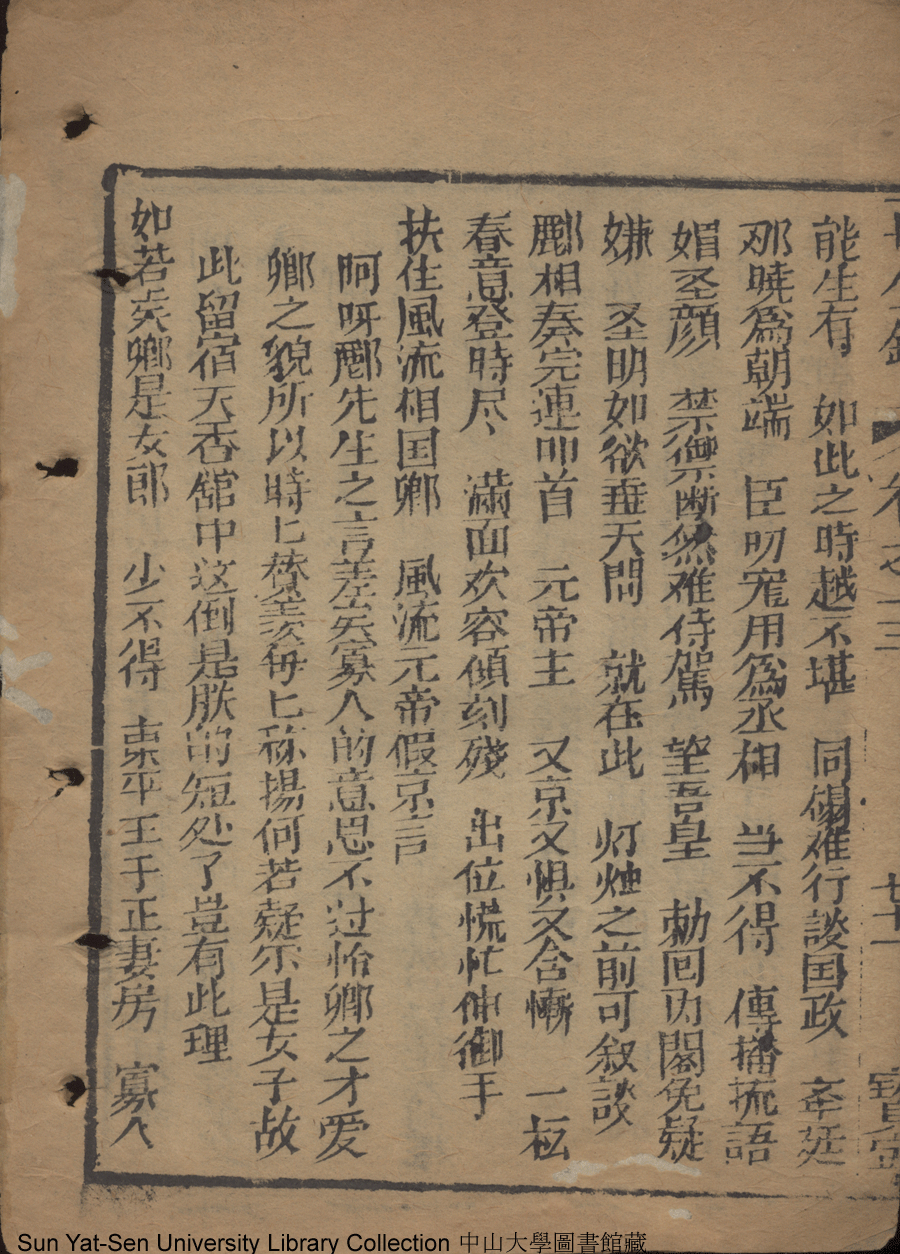 能生有　如此之時越不堪　同榻难行談国政　 
那曉爲朝端　臣叨寵用爲丞相　当不得　傳播流語
媚圣顔　禁御断然难侍駕　望吾皇　勅回内閣免疑
嫌　圣明如欲垂天問　就在此　灯烛之前可叙談
酈相奏完連叩首　元帝主　又京又惧又含慚　一
春意登時尽　滿面欢容傾刻殘　出位慌忙伸御手
扶住風流相国卿　風流元帝假京言
阿呀酈先生之言差矣寡人的意思不过怡卿之才爱
卿之貌所以時匕赞羡每匕称揚何若疑尔是女子故
此留宿天香舘中这倒是朕的短处了豈有此理
如若矣卿是女郎　少不得　東平王子正妻房　寡人
卷之三
Sun Yat-Sen University Library Collection 中山大學圖書館藏